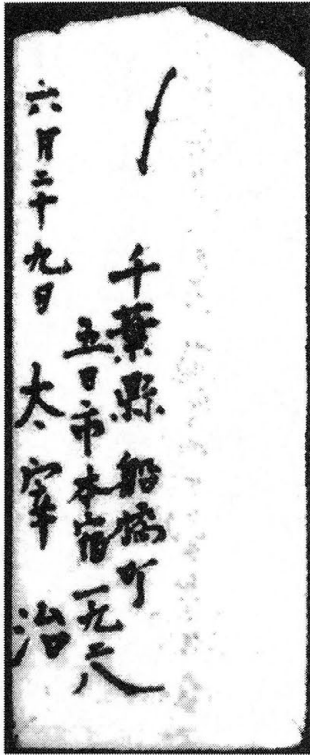 千葉縣 船橋町
五日市本宿一九二八
六月二十九日 太宰 治